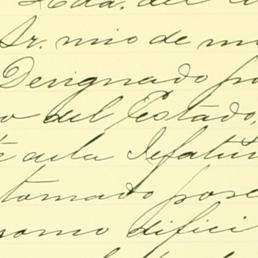 Hda. del
Sr. mio de m
Designado po
o del Estado,
te de la Jefatu
tomado pose
como difici